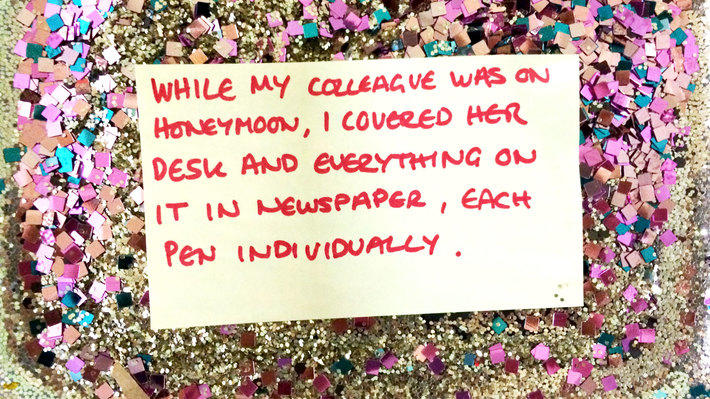 WHILE MY COLLEAGUE WAS ON
HONEYMOON, I COVERED HER
DESK AND EVERYTHING ON
IT IN NEWSPAPER, EACH
PEN INDIVIDUALLY.